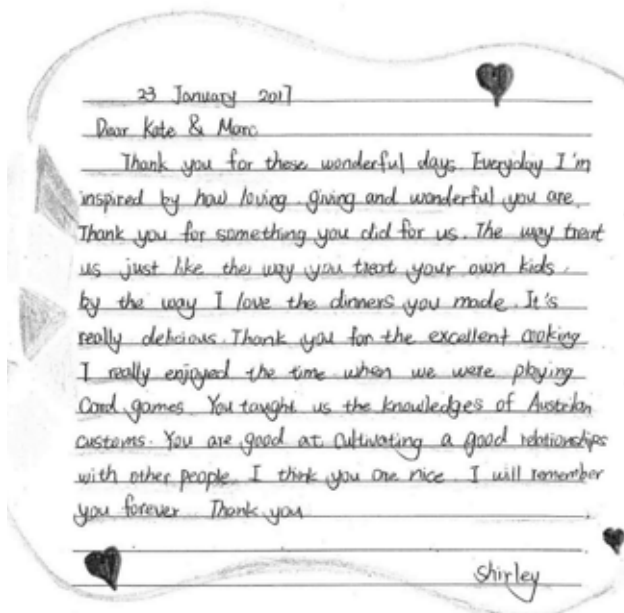 23 January 2017
Dear Kate & Marc
Thank you for these wonderful days. Everyday I'm
inspired by how loving, giving and wonderful you are.
Thank you for something you did for us. The way treat
us just like the way you treat your own kids.
by the way I love the dinners you made. It's
really delicious. Thank you for the excellent cooking
I really enjoyed the time when we were playing
Card games. You taught us the knowledges of
customs. You are good at cultivating a good relationships
with other people. I think you are nice. I will remember
you forever. Thank you
Shirley